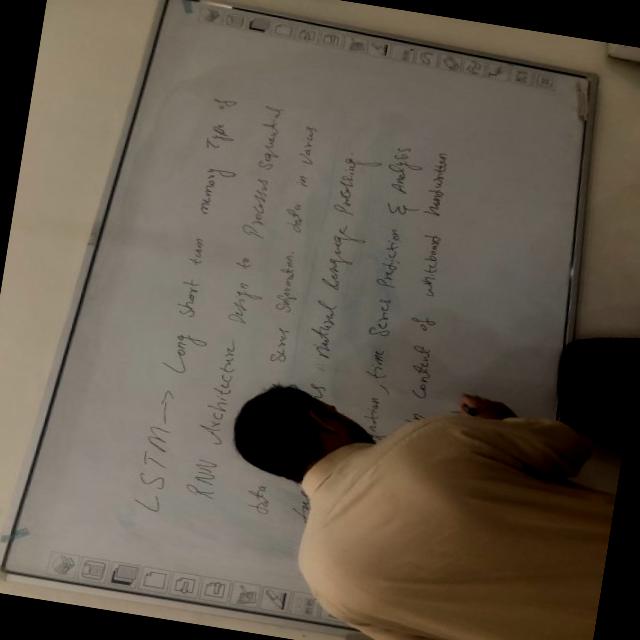 LSTM → Long short team memory Type of
RNN Architecture Design to Processes Sequential
data Some Seperation data in Various
is natural Language Processing
, time Series Prediction & Analysis
Context of whiteboard handwritten